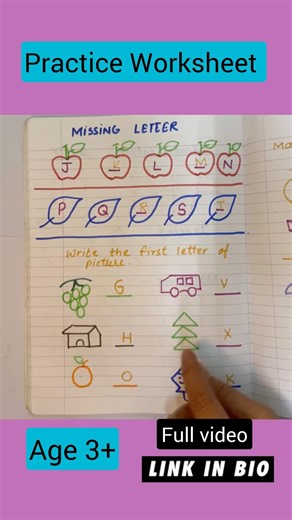 Practice Worksheet
MISSING LETTER
J K L M N
P Q R S T
Ma
Write the first letter of
picture.
G V
H X
O K
Age 3+
Full video
LINK IN BIO